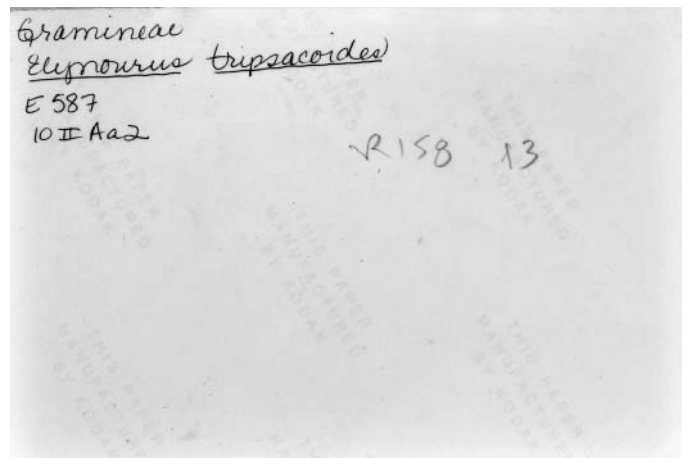 Gramineae
Elymourus tripsacoides
E 587
10 II Aa2
R158 13
THIS PAPER
MANUFACTURED
BY KODAK